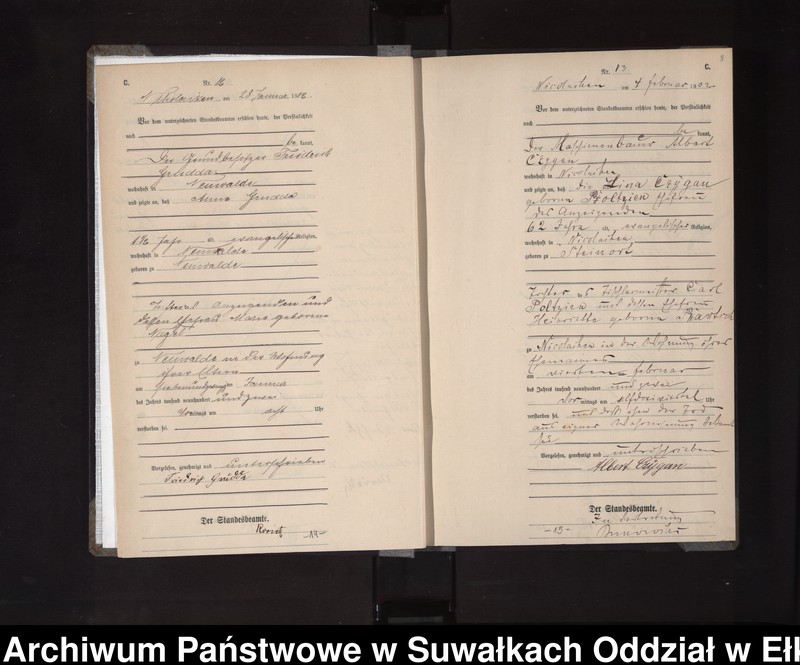 C.
Nr. 12
Nikolaiken am 28 Januar 1902
Vor dem unterzeichneten Standesbeamten erschien heute, der Persönlichkeit
nach
be kannt,
Der Grundbesitzer Friedrich
wohnhaft in Neuwalde
und zeigte an, daß Anna
1½ Jahr a evangelischer Religion,
wohnhaft in Neuwalde
geboren zu Neuwalde
Tochter Anzeigenden und
dessen Ehefrau Marie geborene
zu Neuwalde in der Wohnung
ihrer Eltern
am siebenundzwanzigsten Januar
des Jahres tausend neunhundert und zwei
Vormittags um acht Uhr
verstorben sei.
Vorgelesen, genehmigt und unterschrieben
Friedrich
Der Standesbeamte.
-14-
C.
Nr. 13
Nicolaiken am 4 Februar 1902
Vor dem unterzeichneten Standesbeamten erschien heute, der Persönlichkeit
nach
be kannt,
Der Maschinenbauer Albert
Czygan
wohnhaft in Nicolaiken
und zeigte an, daß die Lina Czygan
geborene Poltzien Ehefrau
des Anzeigenden
62 Jahre a, evangelischer Religion,
wohnhaft in Nicolaiken
geboren zu Steinort
Tochter des Tischlermeister Carl
Poltzien und dessen Ehefrau
Henriette geborene Bartsch
zu Nicolaiken in der Wohnung ihres
Ehemannes
am vierten Februar
des Jahres tausend neunhundert und zwei
Vor mittags um elfdreiviertel Uhr
verstorben sei. und daß ihm der Tod
aus eigner Wahrnehmung bekannt
sei
Vorgelesen, genehmigt und unterschrieben
Albert Czygan
Der Standesbeamte.
In Vertretung
-15-
Archiwum Państwowe w Suwałkach Oddział w Ełk